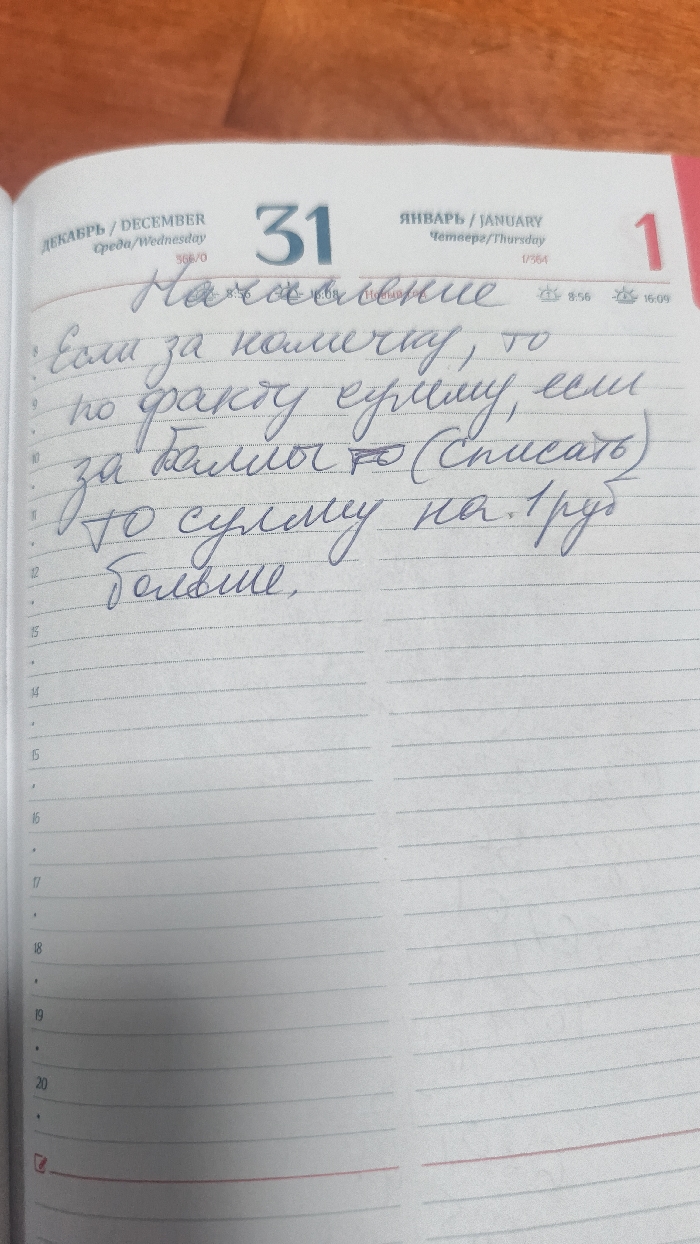 ДЕКАБРЬ / DECEMBER 31 ЯНВАРЬ / JANUARY 1
Среда/Wednesday Четверг/Thursday
366/0 1/364
8:56 16:08 8:56 16:09
Начисление
Если за копеечку, то
по факту сумму, если
за баллы (списать)
то сумму на 1 руб
больше.
8
9
10
11
12
13
14
15
16
17
18
19
20